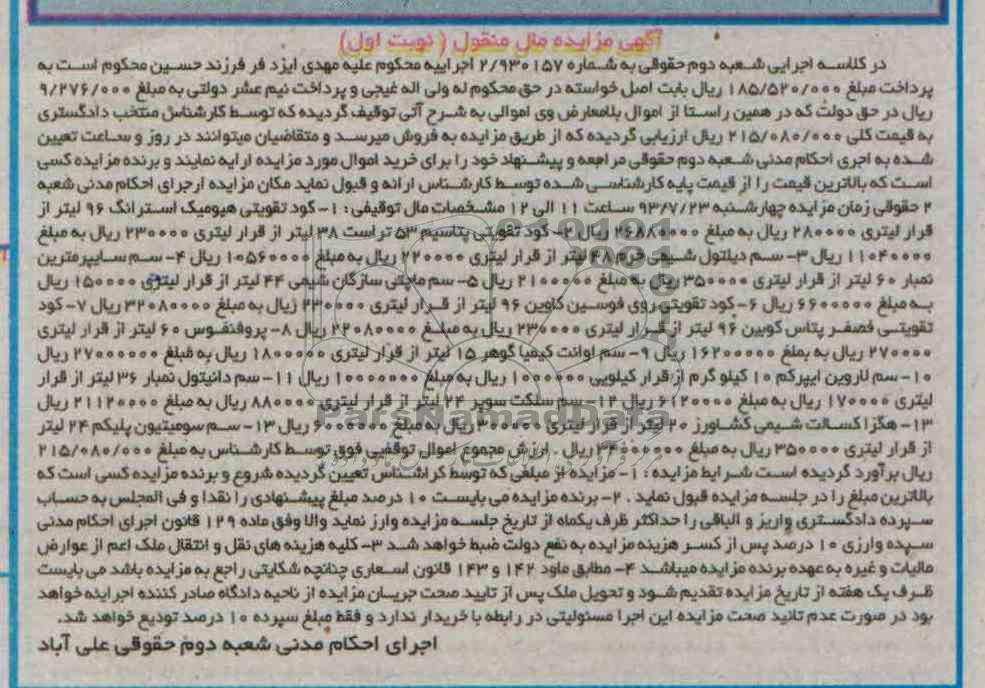 آگهی مزایده مال منقول ( نوبت اول)
در کلاسه اجرایی شعبه دوم حقوقی به شماره ۲/۹۳۰۱۵۷ اجراییه محکوم علیه مهدی ایزد فر فرزند حسین محکوم است به
پرداخت مبلغ ۱۸۵/۵۲۰/۰۰۰ ریال بابت اصل خواسته در حق محکوم له ولی اله غیجی و پرداخت نیم عشر دولتی به مبلغ ۹/۲۷۶/۰۰۰
ریال در حق دولت که در همین راستا از اموال بلامعارض وی اموالی به شرح آتی توقیف گردیده که توسط کارشناس منتخب دادگستری
به قیمت کلی ۲۱۵/۰۸۰/۰۰۰ ریال ارزیابی گردیده که از طریق مزایده به فروش میرسد و متقاضیان میتوانند در روز و ساعت تعیین
شده به اجری احکام مدنی شعبه دوم حقوقی مراجعه و پیشنهاد خود را برای خرید اموال مورد مزایده ارایه نمایند و برنده مزایده کسی
است که بالاترین قیمت را از قیمت پایه کارشناسی شده توسط کارشناس ارائه و قبول نماید مکان مزایده ارجرای احکام مدنی شعبه
۲ حقوقی زمان مزایده چهارشنبه ۹۳/۷/۲۳ ساعت ۱۱ الی ۱۲ مشخصات مال توقیفی : ۱- کود تقویتی هیومیک استرانگ ۹۶ لیتر از
قرار لیتری ۲۸۰۰۰۰ ریال به مبلغ ۲۶۸۸۰۰۰۰ ریال ۲- کود تقویتی پتاسیم ۵۳ تراست ۳۸ لیتر از قرار لیتری ۲۳۰۰۰۰ ریال به مبلغ
۱۱۰۴۰۰۰۰ ریال ۳- سم دیلتول شیمی خرم ۴۸ لیتر از قرار لیتری ۲۲۰۰۰۰ ریال به مبلغ ۱۰۵۶۰۰۰۰ ریال ۴- سم سایپرمترین
نمبار ۶۰ لیتر از قرار لیتری ۳۵۰۰۰۰ ریال به مبلغ ۲۱۰۰۰۰۰۰ ریال ۵- سم مایتی سازگان شیمی ۴۴ لیتر از قرار لیتری ۱۵۰۰۰۰ ریال
به مبلغ ۶۶۰۰۰۰۰ ریال ۶- کود تقویتی روی فوسین کاوین ۹۶ لیتر از قرار لیتری ۲۳۰۰۰۰ ریال به مبلغ ۳۲۰۸۰۰۰۰ ریال ۷- کود
تقویتی فصفر پتاس کویین ۹۶ لیتر از قرار لیتری ۲۳۰۰۰۰ ریال به مبلغ ۲۲۰۸۰۰۰۰ ریال ۸- پروفنفوس ۶۰ لیتر از قرار لیتری
۲۷۰۰۰۰ ریال به بملغ ۱۶۲۰۰۰۰۰ ریال ۹- سم اوانت کیمیا گوهر ۱۵ لیتر از قرار لیتری ۱۸۰۰۰۰۰ ریال به مبلغ ۲۷۰۰۰۰۰۰ ریال
۱۰- سم لاروین ایپرکم ۱۰ کیلو گرم از قرار کیلویی ۱۰۰۰۰۰۰ ریال به مبلغ ۱۰۰۰۰۰۰۰ ریال ۱۱- سم دانیتول نمبار ۳۶ لیتر از قرار
لیتری ۱۷۰۰۰۰ ریال به مبلغ ۶۱۲۰۰۰۰ ریال ۱۲- سم سلکت سوپر ۲۴ لیتر از قرار لیتری ۸۸۰۰۰۰ ریال به مبلغ ۲۱۱۲۰۰۰۰ ریال
۱۳- هگزاکسالت شیمی کشاورز ۲۰ لیتر از قرار لیتری ۳۰۰۰۰۰ ریال به مبلغ ۶۰۰۰۰۰۰ ریال ۱۳- سم سومیتیون پلیکم ۲۴ لیتر
از قرار لیتری ۳۵۰۰۰۰ ریال به مبلغ ریال . ارزش مجموع اموال توقفیی فوق توسط کارشناس به مبلغ ۲۱۵/۰۸۰/۰۰۰
ریال برآورد گردیده است شرایط مزایده : ۱- مزایده از مبلغی که توسط کراشناس تعیین گردیده شروع و برنده مزایده کسی است که
بالاترین مبلغ را در جلسه مزایده قبول نماید . ۲- برنده مزایده می بایست ۱۰ درصد مبلغ پیشنهادی را نقدا و فی المجلس به حساب
سپرده دادگستری واریز و الباقی را حداکثر ظرف یکماه از تاریخ جلسه مزایده وارز نماید والا وفق ماده ۱۲۹ قانون اجرای احکام مدنی
سپده وارزی ۱۰ درصد پس از کسر هزینه مزایده به نفع دولت ضبط خواهد شد ۳- کلیه هزینه های نقل و انتقال ملک اعم از عوارض
مالیات و غیره به عهده برنده مزایده میباشد ۴- مطابق ماود ۱۴۲ و ۱۴۳ قانون اسعاری چنانچه شکایتی راجع به مزایده باشد می بایست
ظرف یک هفته از تاریخ مزایده تقدیم شود و تحویل ملک پس از تایید صحت جریان مزایده از ناحیه دادگاه صادر کننده اجرائیه خواهد
بود در صورت عدم تائید صحت مزایده این اجرا مسئولیتی در رابطه با خریدار ندارد و فقط مبلغ سپرده ۱۰ درصد تودیع خواهد شد.
اجرای احکام مدنی شعبه دوم حقوقی علی آباد
ParsNamadData